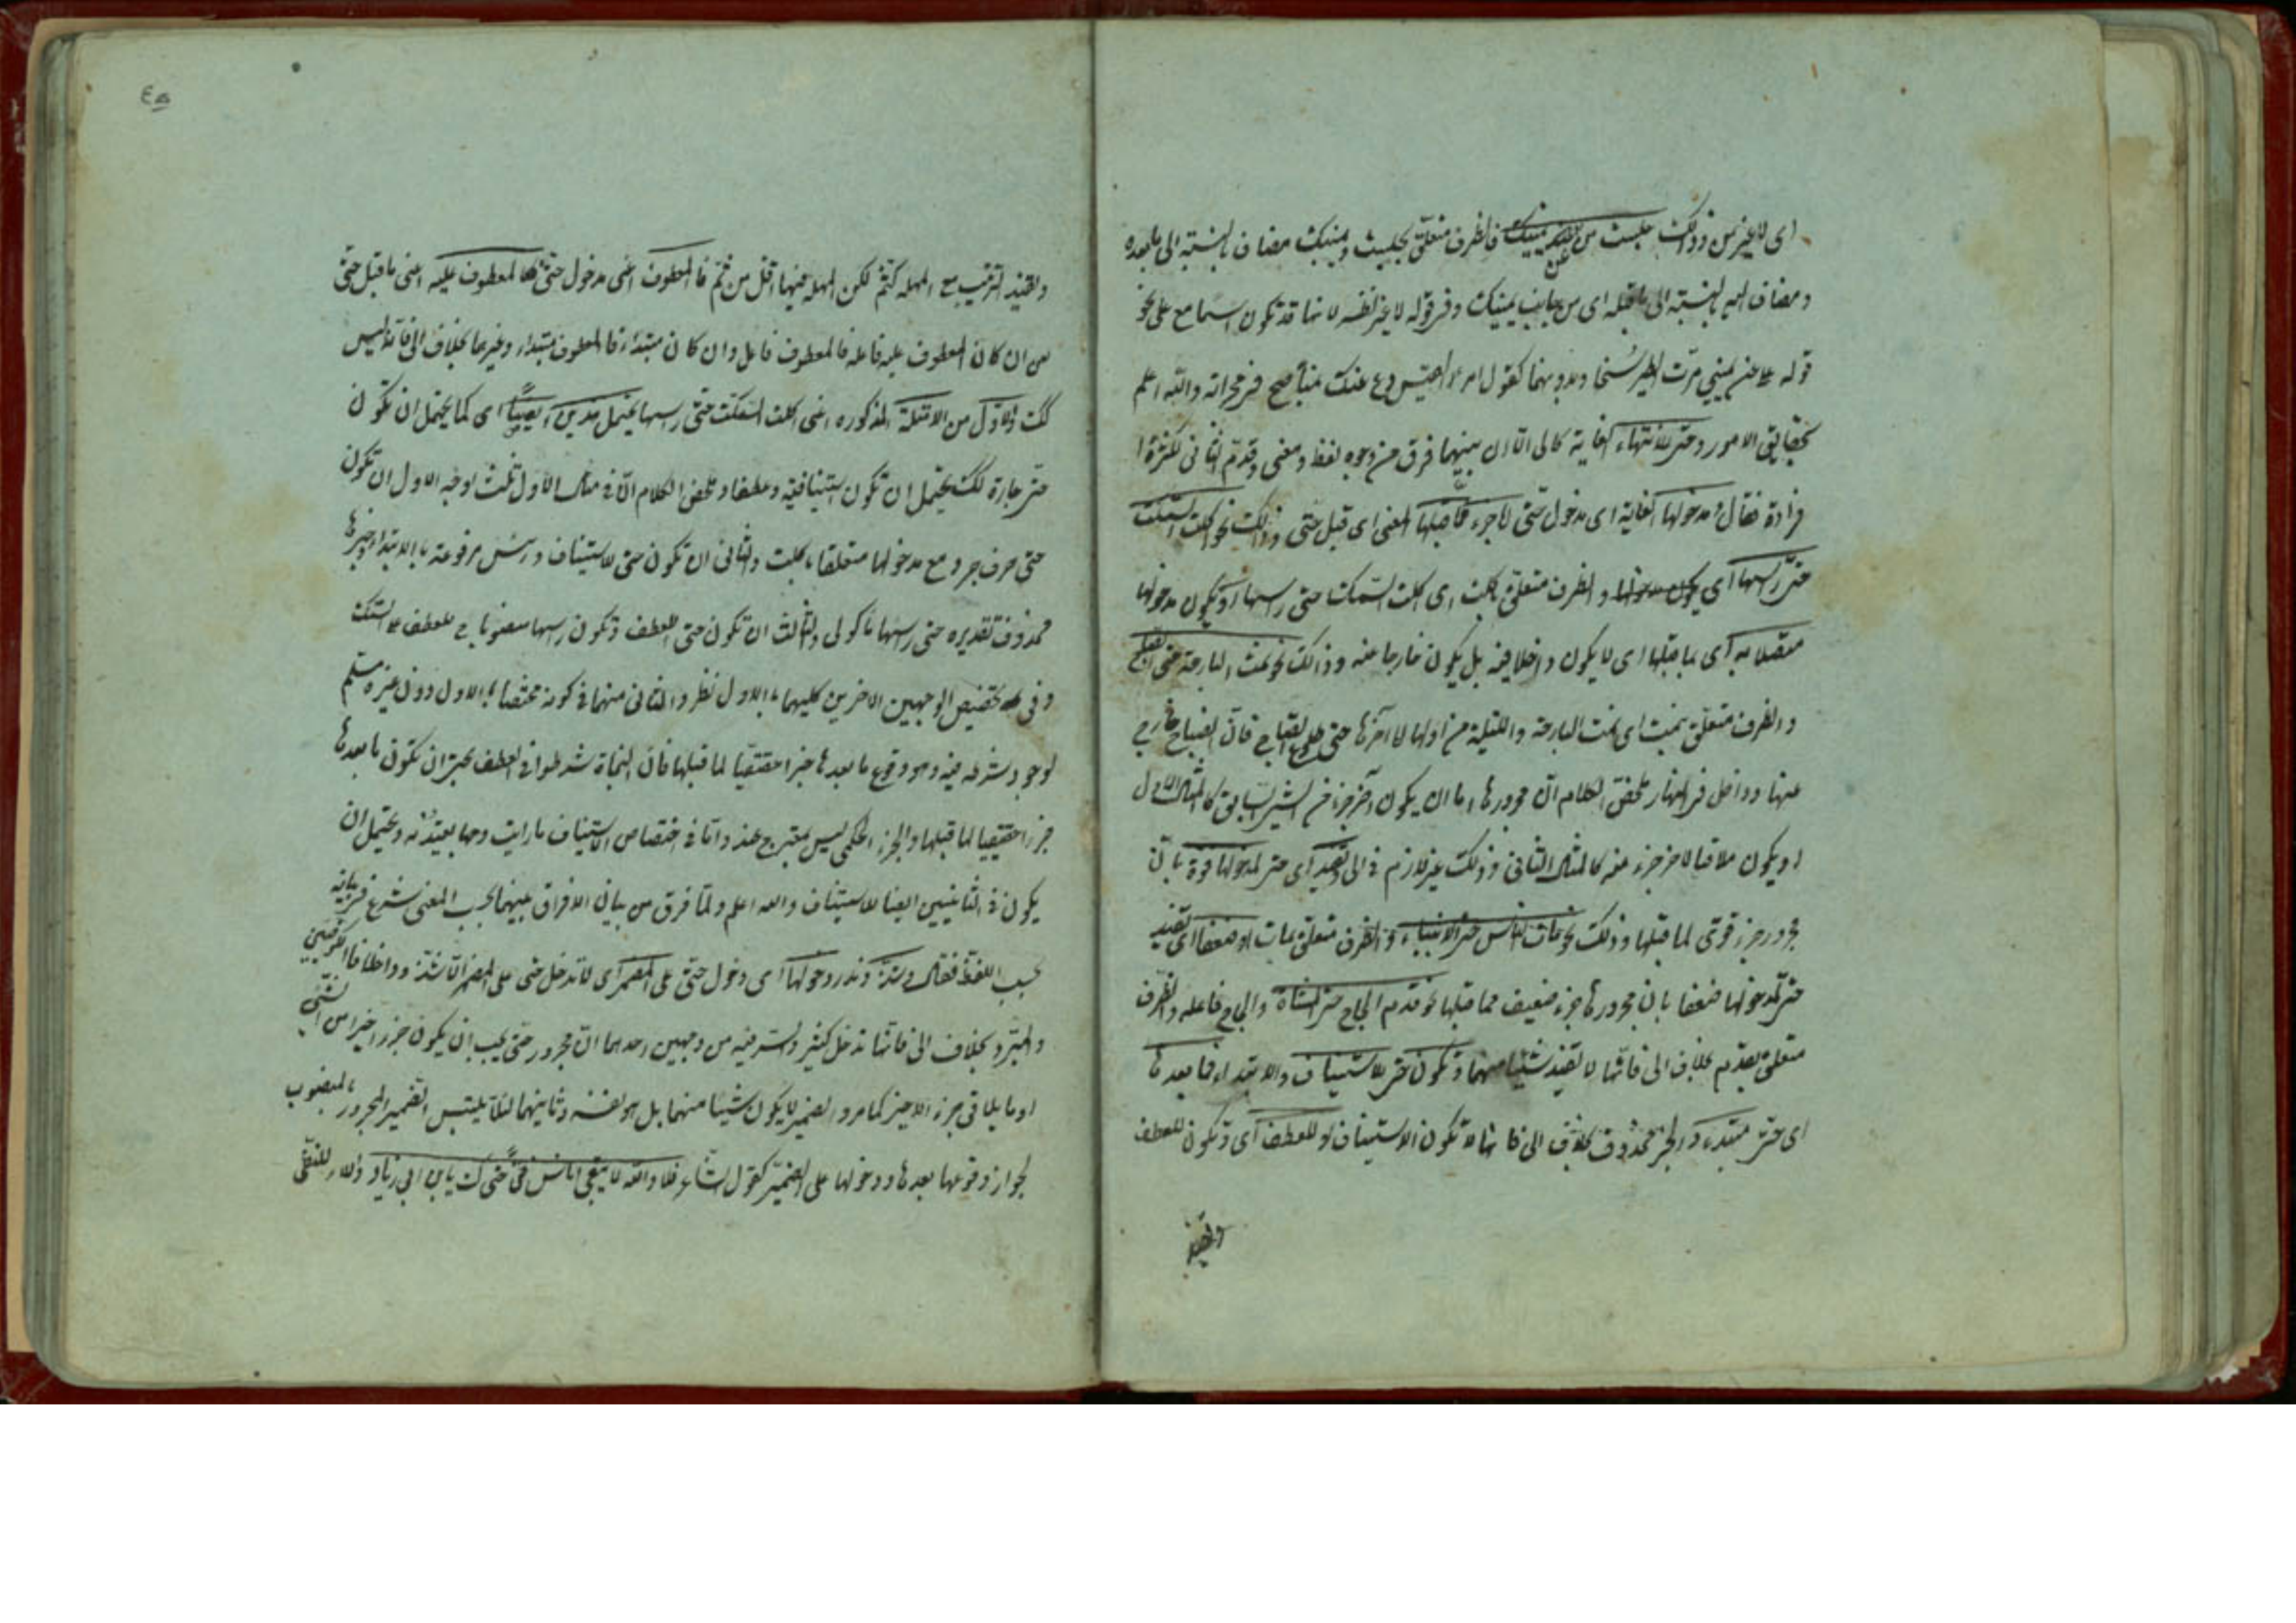 اى لا غير من وذلك جلست من عن يمينك فالظرف متعلق بجلست ويمينك مضاف بالنسبة الى ما بعده
ومضاف اليه بالنسبة الى ما قبله اى من جانب يمينك وفى قوله لا غير نظر لانها قد تكون اسما مع على نحو
قوله على عن يمينى مرّت الطير سُنحا وبدونهما كقول امرء القيس دع عنك نهبا صيح فى حجراته والله اعلم
بحقايق الامور وحتى للانتهاء الغاية كالى الا ان بينهما فرق من وجوه لفظ ومعنى وقدم الثانى لكثرة ا
فرادة فقال ومدخولها الغاية اى مدخول حتى لاجزء مما قبلها المعنى اى قبل حتى وذلك نحو اكلت السمكت
حتى راسها اى والظرف متعلق باكلت اى اكلت السمكت حتى راسها او يكون مدخولها
متصلا به اى بما قبلها اى لا يكون داخلا فيه بل يكون خارجا عنه وذالك نحو نمت البارحة حتى الصباح
والظرف متعلق بنمت اى نمت البارحة والليلة من اولها لا آخرها حتى طلوع الصباح فان الصباح خارج
عنها وداخل فى النهار ملخص الكلام ان مجرورها اما ان يكون آخر جزء من الشىء السابق كالمثال الاول
او يكون ملاقيا لاخر جزء منه كالمثال الثانى وذلك غير لازم فى الى وتفيد اى حتى لمدخولها قوة بان
مجرور جزء قوى لما قبلها وذلك نحو مات الناس حتى الانبياء والظرف متعلق بمات او ضعفا اى تفيد
حتى لمدخولها ضعفا بان مجرورها جزء ضعيف مما قبلها نحو قدم الحاج حتى المشاة والحاج فاعله والظرف
متعلق بقدم بخلاف الى فانها لا تفيد شيئا منهما وتكون حتى للاستيناف والابتداء فما بعدها
اى حتى مبتدء والخبر محذوف بخلاف الى فانها لا تكون الاستيناف او للعطف اى وتكون للعطف
وتفيد
٤٥
وتفيد الترتيب مع المهلة كثم لكن المهلة فيها اقل من ثم فالمعطوف اعنى مدخول حتى كالمعطوف عليه اعنى ما قبل حتى
من ان كان المعطوف عليه فاعله فالمعطوف فاعل وان كان مبتداء فالمعطوف مبتداء وغيرهما بخلاف الى فانه ليس
كك والاول من الامثلة المذكوره اعنى اكلت السمكت حتى راسها يحتمل هذين ايضا اى كما يحتمل ان تكون
حتى جارة كك يحتمل ان تكون استينافية وعطفا وملخص الكلام ان فى مثال الاول ثلث اوجه الاول ان تكون
حتى حرف جر ومع مدخولها متعلقا باكلت والثانى ان تكون حتى للاستيناف وراس مرفوعة بالابتداء وخبرها
محذوف تقديره حتى راسها ماكول والثالث ان تكون حتى للعطف وتكون راسها منصوبا للعطف على السمكت
وفى تخصيص الوجهين الاخرين كليهما بالاول نظر والثانى منهما فى كونه مختصا بالاول دون غيره مسلم
لوجود شرطه فيه وهو وقوع ما بعدها جزءا حقيقيا لما قبلها فان النحاة شرطوا فى العطف بحتى ان تكون ما بعدها
جزءا حقيقيا لما قبلها والجزء الحكمى ليس بمعتبر عنده واما فى اختصاص الاستيناف ما رايت وجها يعتد به ويحتمل ان
يكون فى الثانيين ايضا للاستيناف والله اعلم ولما فرق من بيان الافراق بينهما بحسب المعنى شرع فى بيانه
بحسب اللفظ فقال وشذ وندر دخولها اى دخول حتى على المضمر اى لا تدخل حتى على المضمر الا شذ وذا خلافا للكوفيين
والمبرد بخلاف الى فانها تدخل كثير والسر فيه من وجهين احدهما ان مجرور حتى يجب ان يكون جزءا اخيرا من الشىء
او ما يلاقى جزء الاخير كما مر والضمير لا يكون شيئا منهما بل هو نفسه وثانيهما لئلا يلتبس الضمير المجرور بالمنصوب
لجواز وقوعها بعدها ودخولها على الضمير كقول الشاعر فلا والله لا يبقى اناس فتى حتاك يا بن ابى زياد ولاء للنفى